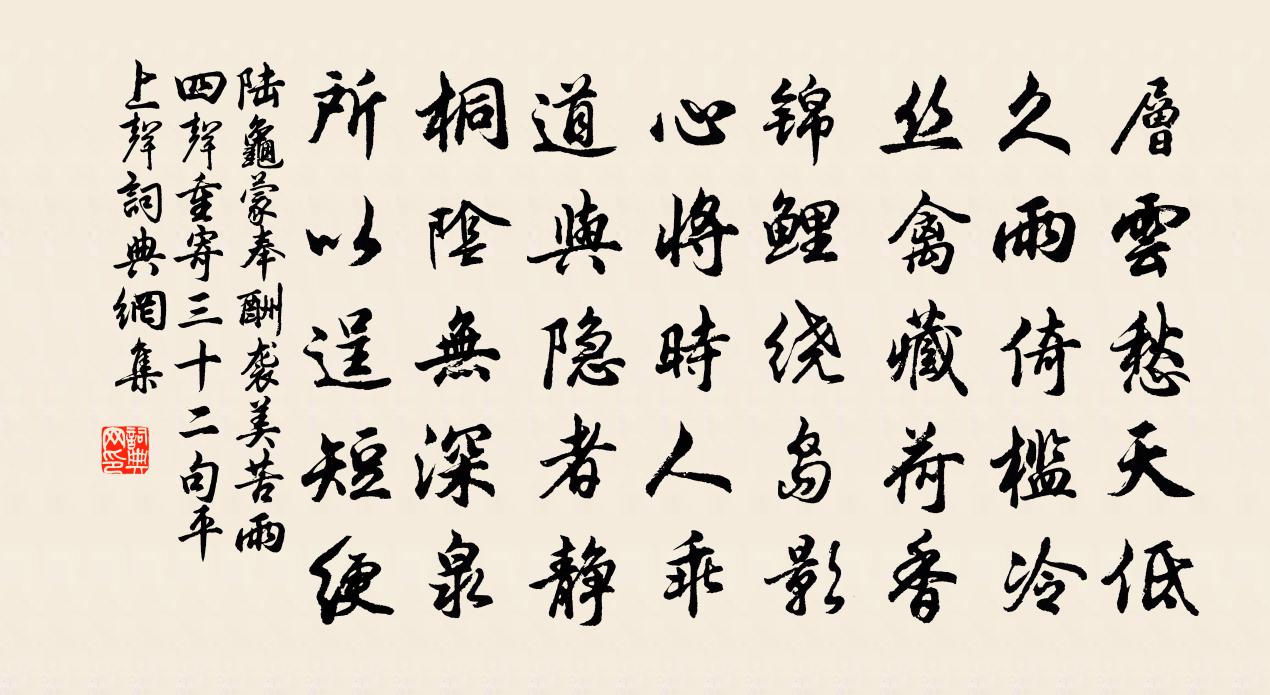 層雲愁天低
久雨倚檻冷
丝禽藏荷香
锦鲤绕岛影
心將時人乖
道與隐者静
桐陰無深泉
所以逞短绠
陆龜蒙奉酬袭美苦雨
四聲重寄三十二句平
上聲詞典網集
詞典
网印